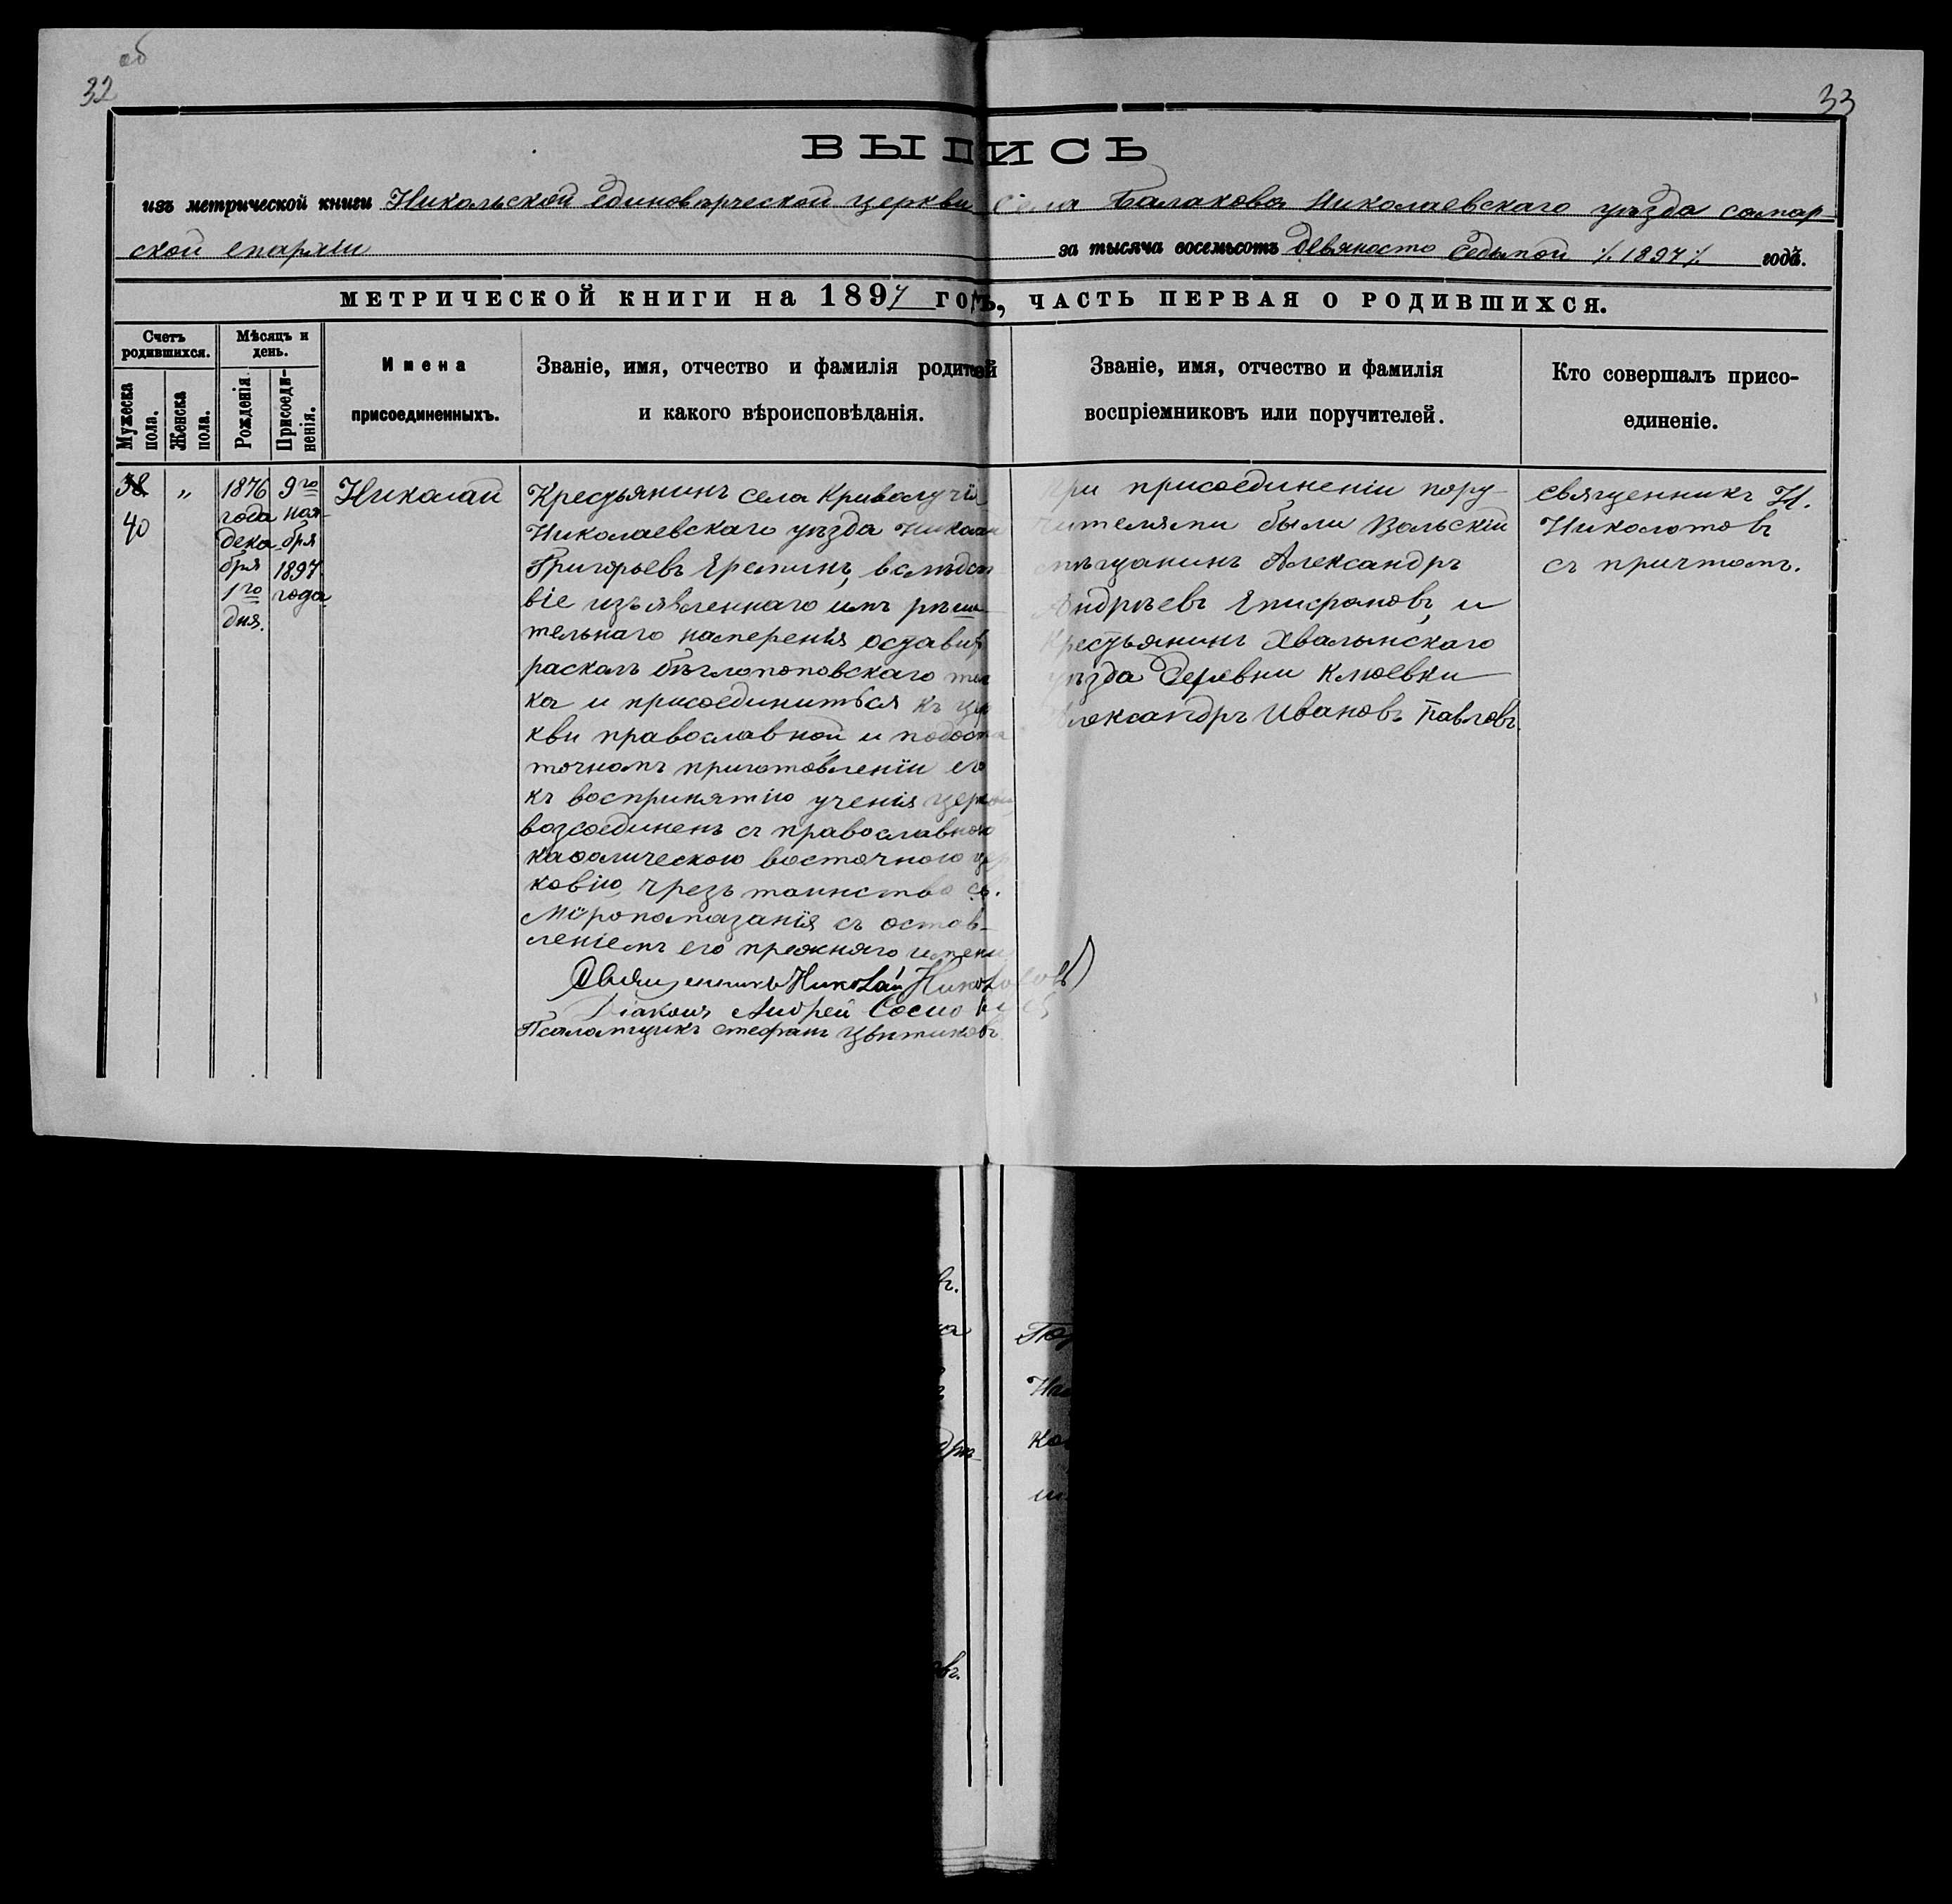 об
32
33
ВЫПИСЬ
изъ метрической книги Никольской единовѣрческой церкви Села Балакова Николаевскаго уѣзда самар-
ской епархіи за тысяча восемьсотъ девяносто седьмой /.1897/. годъ.
МЕТРИЧЕСКОЙ КНИГИ НА 1897 ГОДЪ, ЧАСТЬ ПЕРВАЯ О РОДИВШИХСЯ.
Счетъ родившихся.
Мужеска пола.
Женска пола.
Мѣсяцъ и день.
Рожденія.
Присоеди-
ненія.
Имена
присоединенныхъ.
Званіе, имя, отчество и фамилія родителей
и какого вѣроисповѣданія.
Званіе, имя, отчество и фамилія
воспріемниковъ или поручителей.
Кто совершалъ присо-
единеніе.
38
40
"
1876
года
дека
бря
1го
дня.
9го
ноя-
бря
1897
года
Николай
Крестьянинъ села Криволучья
Николаевскаго уѣзда Николай
Григорьевъ Ереминъ, вслѣдст
віе изъявленнаго имъ рѣши-
тельнаго намеренія оставить
расколъ бѣглопоповскаго тол
ка и присоединиться къ цер
кви православной и подоста
точномъ приготовленіи его
къ воспринятію ученія церкви,
возсоединенъ съ православною
каѳолическою восточною цер
ковію, чрезъ таинство св.
Мѵропомазанія съ остав-
леніемъ его прежняго имени
Священникъ Николай
Діаконъ Андрей
Псаломщикъ Стефанъ Цвѣтиковъ.
При присоединеніи пору-
чителями были Вольскій
мѣщанинъ Александръ
Андрѣевъ Епифановъ, и
Крестьянинъ Хвалынскаго
уѣзда Деревни Клюевки
Александръ Ивановъ Павловъ.
священникъ Н.
Николотовъ
съ причтомъ.